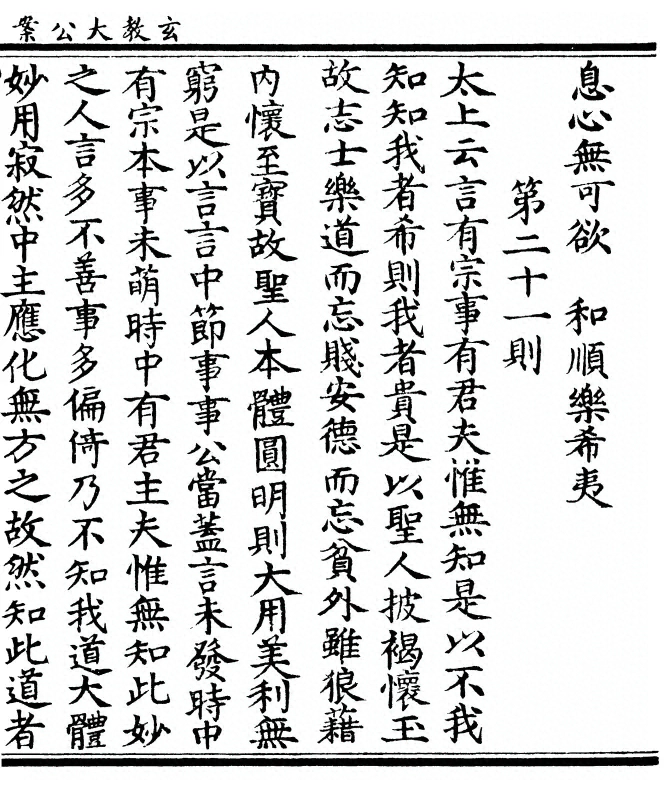 玄教大公案
息心無可欲　和順樂希夷
第二十一則
太上云言有宗事有君夫惟無知是以不我
知知我者希則我者貴是以聖人披褐懷玉
故志士樂道而忘賤安德而忘貧外雖狼藉
內懷至寶故聖人本體圓明則大用美利無
窮是以言言中節事事公當蓋言未發時中
有宗本事未萌時中有君主夫惟無知此妙
之人言多不善事多偏倚乃不知我道大體
妙用寂然中主應化無方之故然知此道者